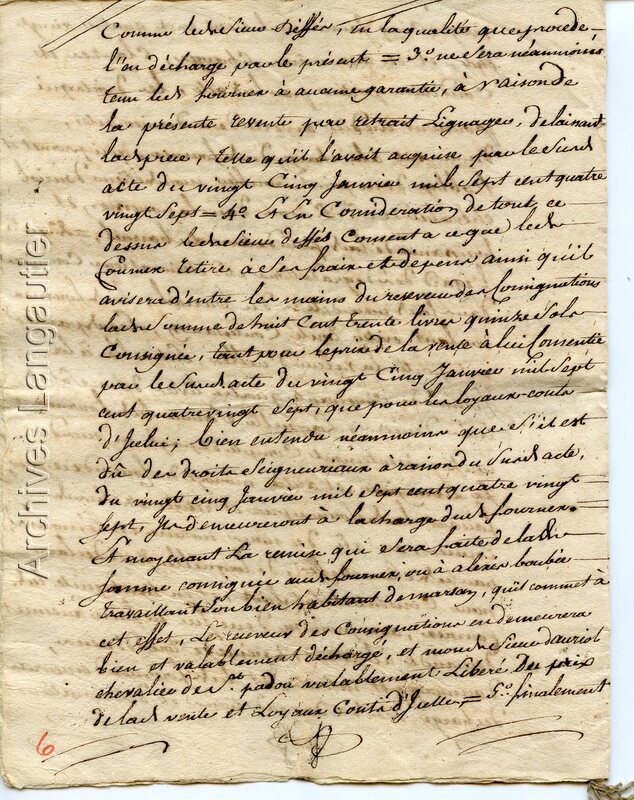 Comme led. Sieur Deffès, en la qualité que procede
l'en décharge par le présent = 3.o ne sera néanmoins
tenu led. fournex à aucune garantie, à raison de
la présente revente par retrait Lignager, delaissant
lad. piece, telle qu'il l'avoit acquise par le susd.
acte du vingt Cinq Janvier mil Sept cent quatre
vingt Sept = 4.o Et En Consideration de tout ce
dessus led. Sieur deffés Consent a ce que led.
fournex retire à ses frais et dépens ainsi qu'il
avisera d'entre les mains du reseveur des Consignations
lad. Somme de huit Cent trente livres quinze Sols
Consignée, tant pour le prix de la vente à lui Consentie
par le Susd. acte du vingt Cinq Janvier mil Sept
cent quatre vingt Sept, que pour les loyaux-couts
d'Icelui; bien entendu néamoins que s'il est
dû des droits Seigneuriaux à raison du Susd. acte,
du vingt cinq Janvier mil Sept cent quatre vingt
Sept, Ils demeureront à la charge dud. fournex.
Et moyenant La remise qui Sera faite de lad.
Somme consignée aud. fournex, ou à alexis
travaillant Son bien habitant de marsan, qu'il commet à
cet effet, Le receveur des Consignations en demeurera
bien et valablement décharge, et mond. Sieur dauriol
chevalier de St. padou valablement Liberé Du prix
de lad. vente et Loyaux Couts d'Icelle, = 5.o finalement
6
Archives Langautier